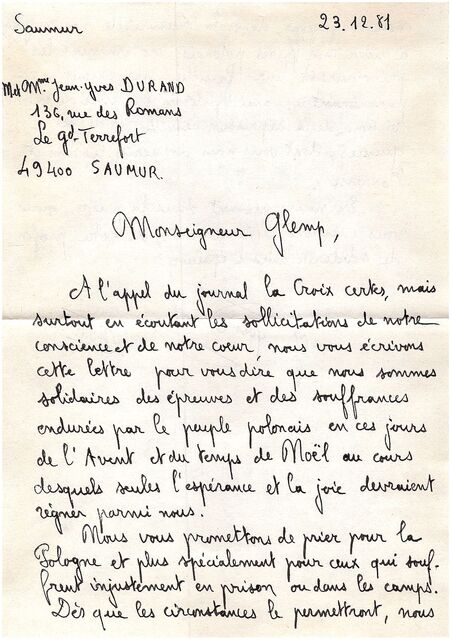 Saumur
23.12.81
M et Mme Jean-Yves DURAND
136, rue des Romans
Le gd-Terrefort
49400 SAUMUR.
Monseigneur Glemp,
A l'appel du journal la Croix certes, mais
surtout en écoutant les sollicitations de notre
conscience et de notre coeur, nous vous écrivons
cette lettre pour vous dire que nous sommes
solidaires des épreuves et des souffrances
endurées par le peuple polonais en ces jours
de l'Avent et du temps de Noël au cours
desquels seules l'espérance et la joie devraient
régner parmi nous.
Nous vous promettons de prier pour la
Pologne et plus spécialement pour ceux qui souf-
frent injustement en prison ou dans les camps.
Dès que les circonstances le permettront, nous